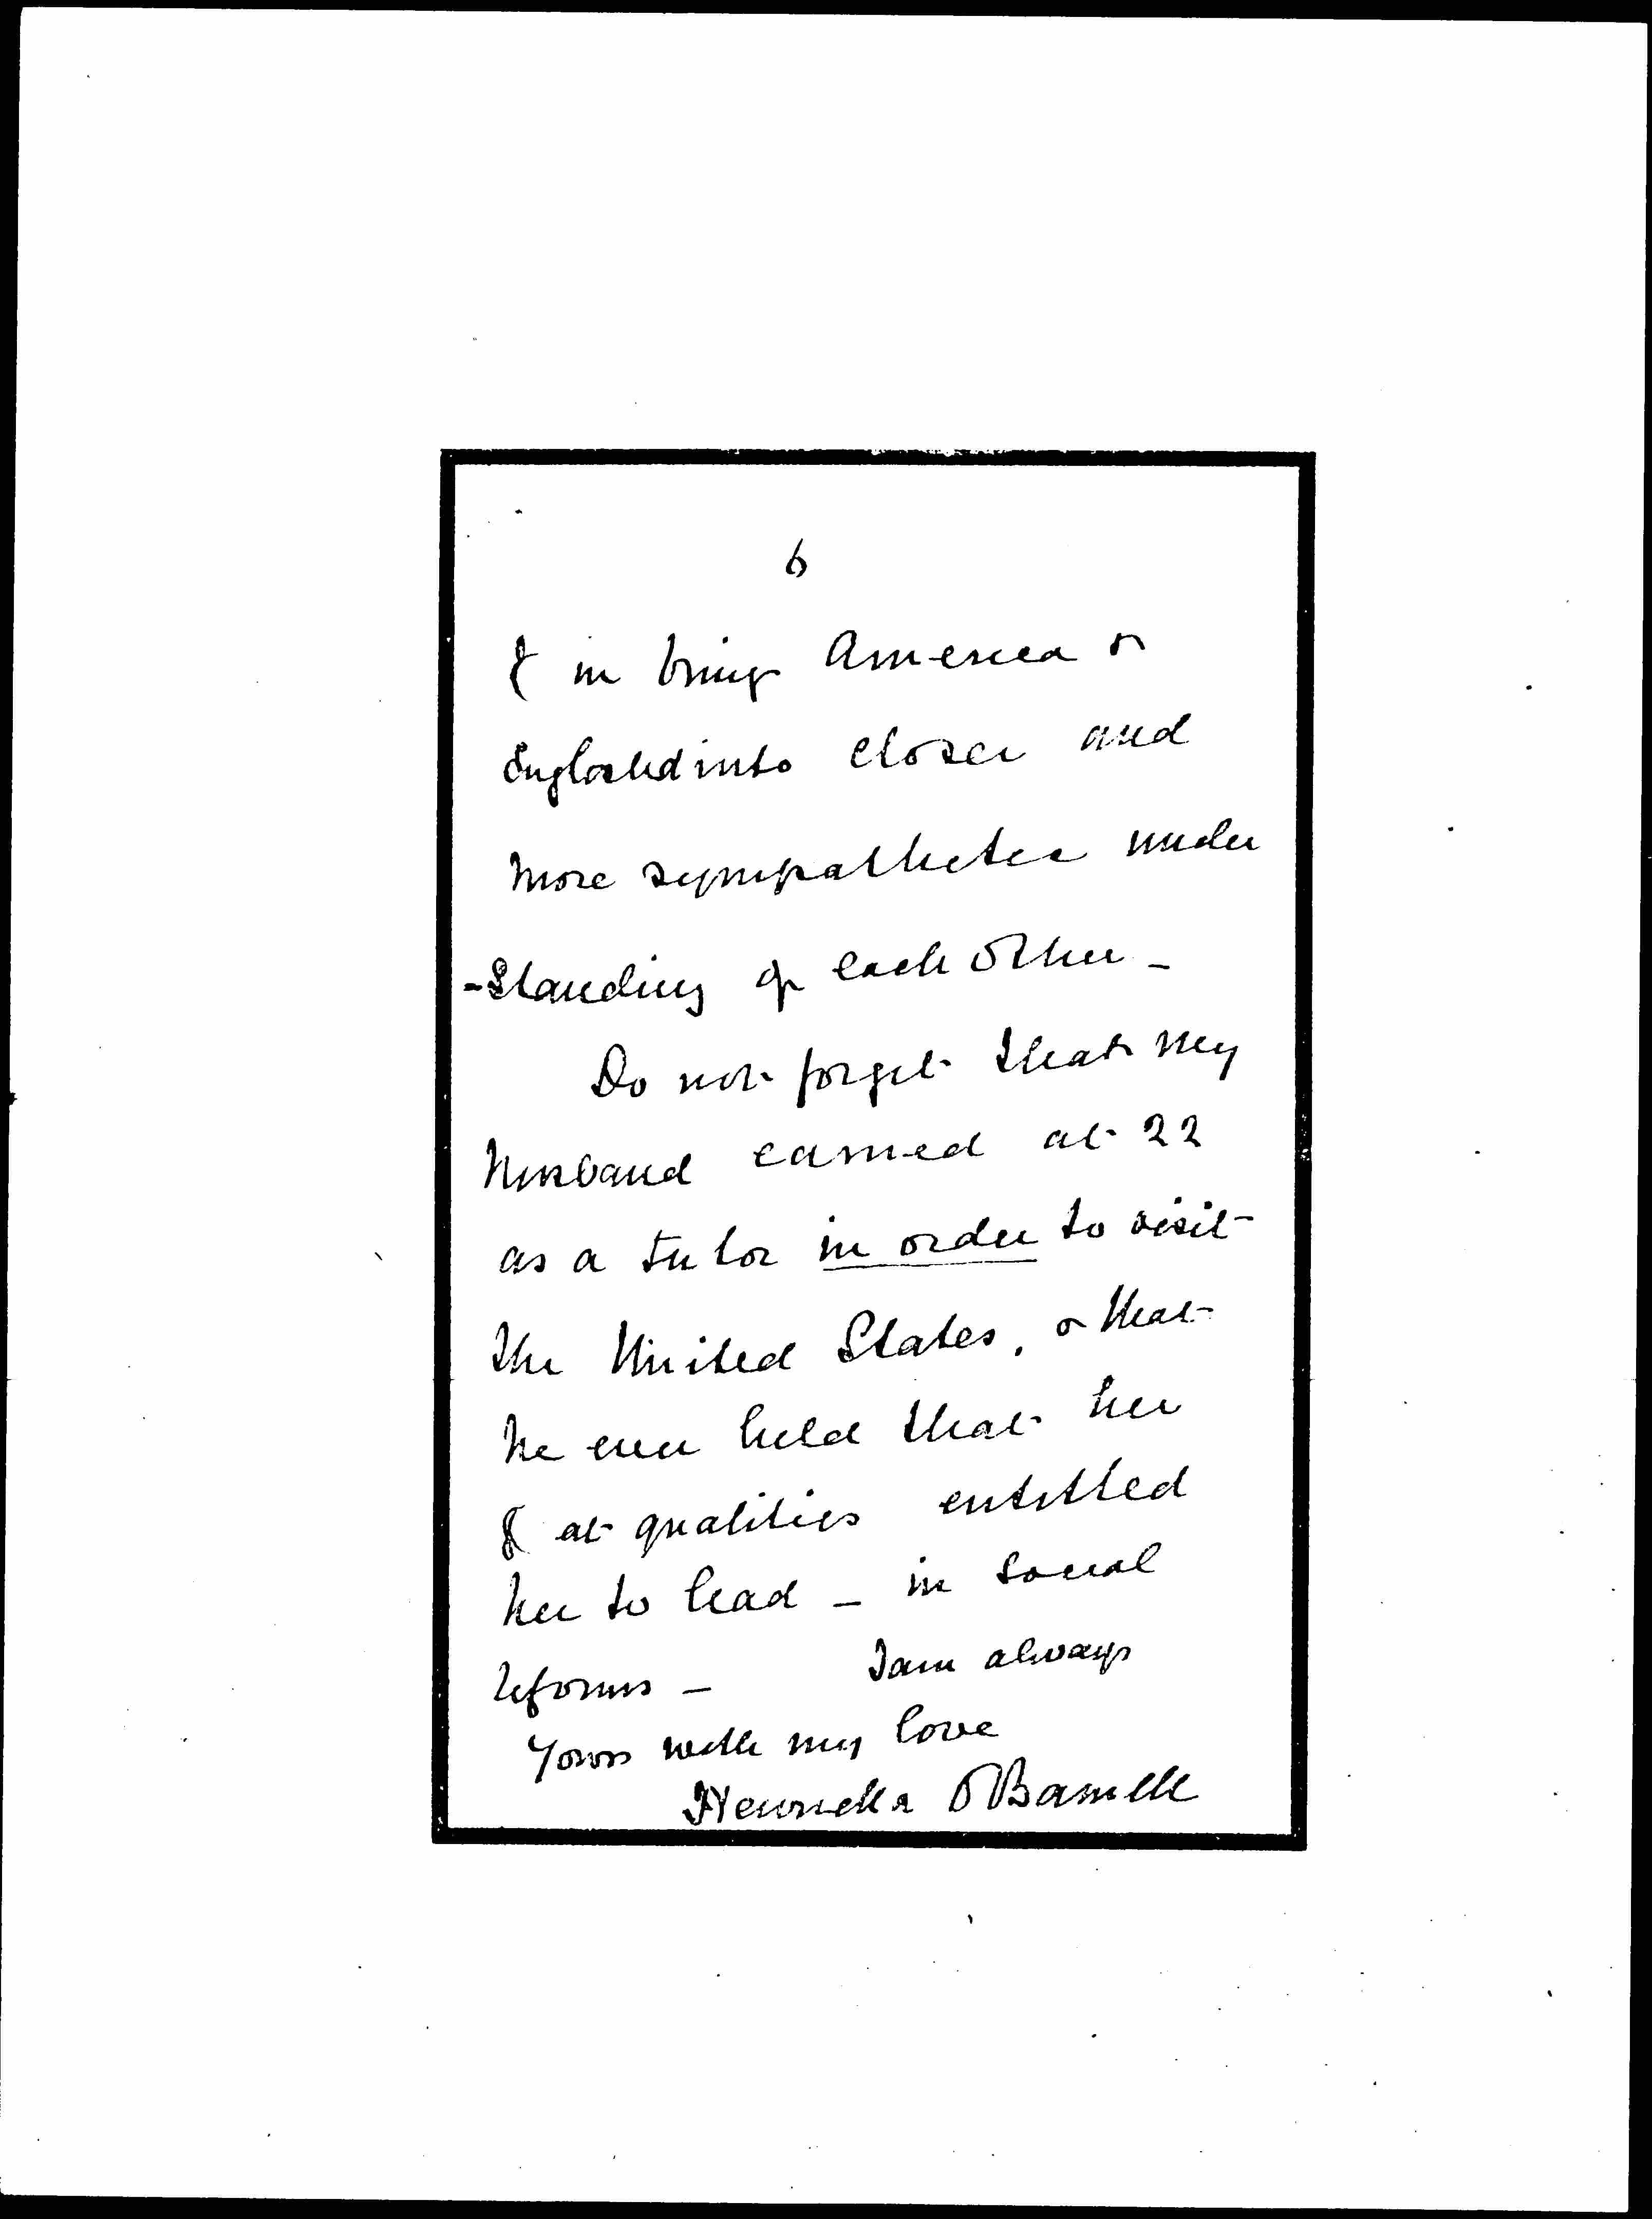 6
& in bring America &
England into closer and
more sympathetic under
-standing of each other -
Do not forget that my
husband earned at 22
as a tutor in order to visit
the United States, & that
he ever held that her
at qualities entitled
her to lead - in social
reforms - I am always
Yours with my love
Henrietta O Barnett